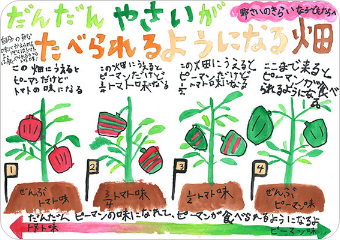 だんだん やさいが
野さいのきらいな子どもたちへ
たべられるようになる畑
この畑にうえると
ピーマンだけど
トマトの味になる
この畑にうえると
ピーマンだけど
トマト味になる
この畑にうえると
ピーマンだけど
トマトの味になる
ここまで来ると
ピーマンが食べ
られるようになる
1
2
3
4
ぜんぶ
トマト味
トマト味
トマト味
ぜんぶ
ピーマン味
だんだんピーマンの味になれて、ピーマンが食べられるようになるよ
トマト味
ピーマン味